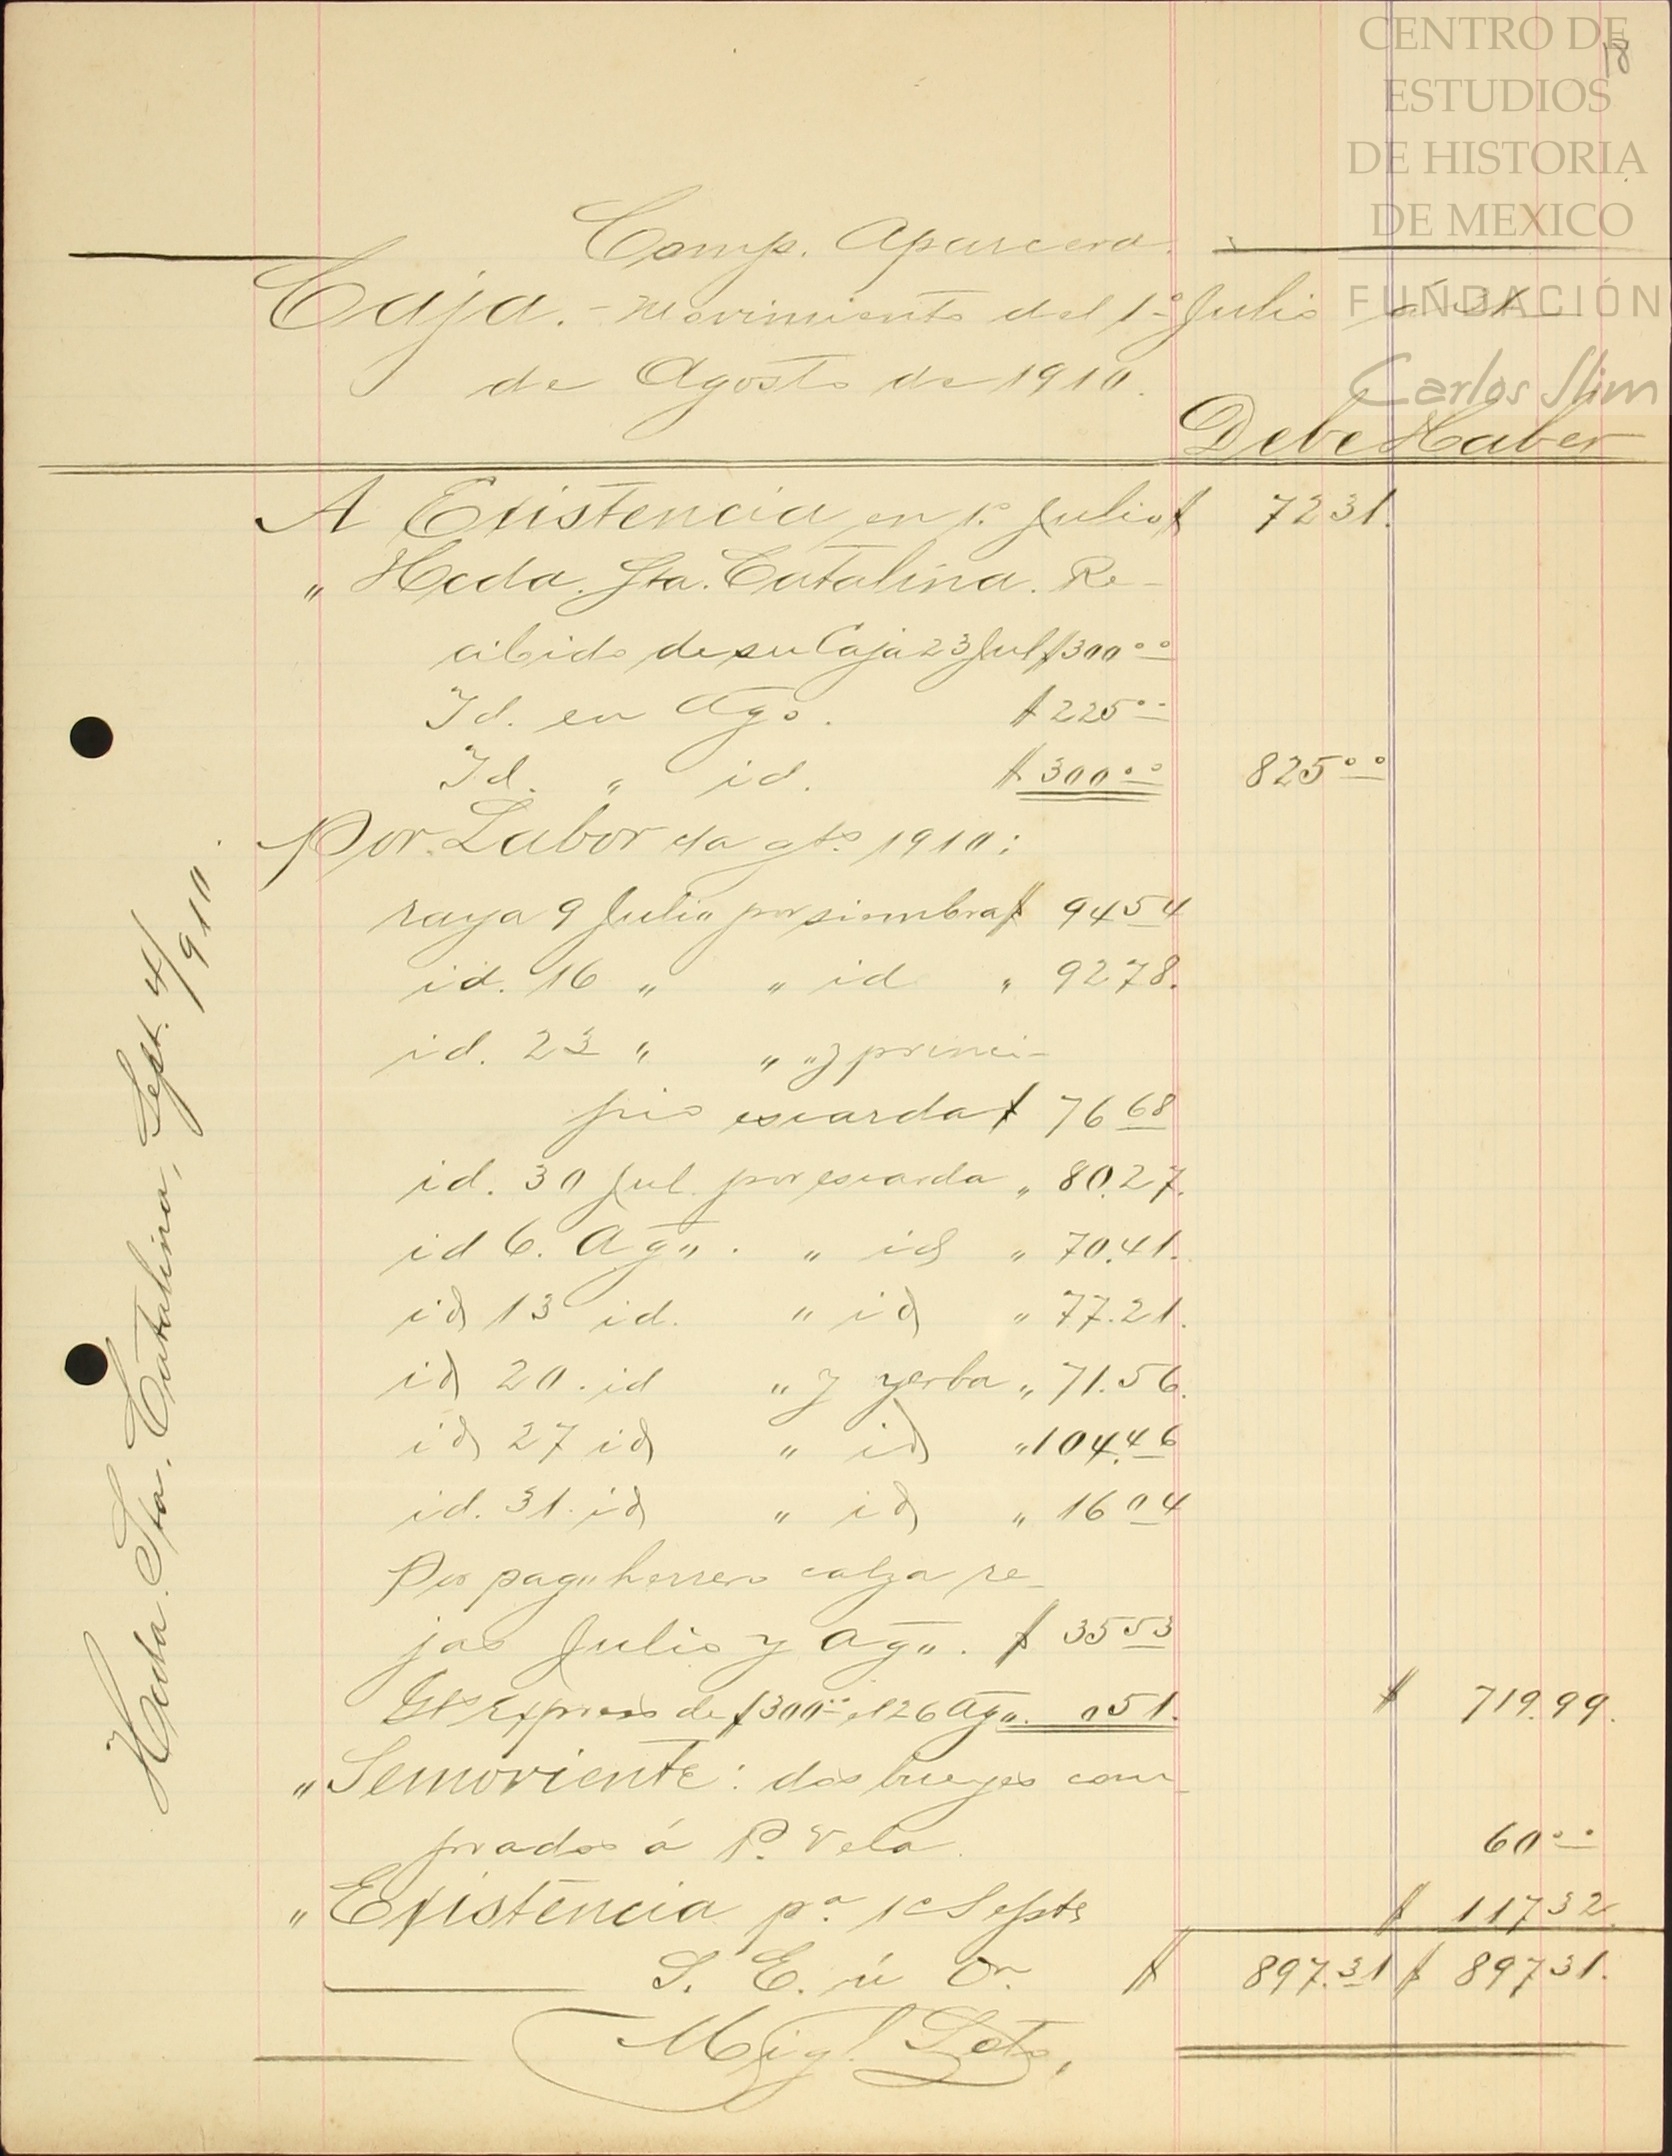 CENTRO DE
ESTUDIOS
DE HISTORIA
DE MEXICO
FUNDACIÓN
Carlos Slim
18
Comp. Aparcera.
Caja. - Movimiento del 1º Julio á 31
de Agosto de 1910.
Debe Haber
A Existencia en 1º Julio $ 7231.
" Hcda. Sta. Catalina. Re-
cibido de su Caja 23 Jul $300.00
Id. en Ago. $ 225.00
Id. " id. $ 300.00 825.00
Por Labor de gto 1910:
raya 9 Julio por siembra $ 94 54
id. 16 " " id " 92 78.
id. 23 " " " y princi-
pio escarda $ 76 68
id. 30 Jul. por escarda " 80.27.
id 6. Ago. " id " 70.41.
id 13 id. " id " 77.21.
id 20. id " y yerba " 71.56.
id 27 id " id " 104.46
id. 31. id " id " 16 04
Por pago herrero calza re-
jas Julio y Ago. $ 35 53
Gts Express de $300.00 el 26 Ago. 0 51. $ 719.99.
" Semoviente: dos bueyes com-
prados á P. Vela. 60.00
" Existencia pª 1º Septe $ 117 32.
S. E. ú On. $ 897.31 $ 897 31.
Migl. Soto,
Hcda. Sta. Catalina, Sept. 4/910.